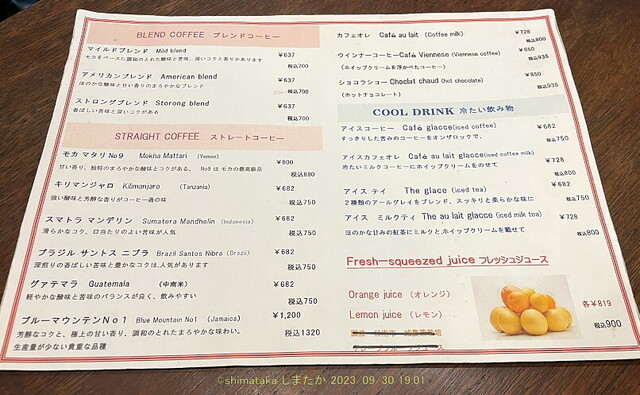 BLEND COFFEE ブレンドコーヒー
マイルドブレンド Mild blend ¥637
モカをベースに調和のとれた酸味と苦味、深いコクと香りがあります
税込700
アメリカンブレンド American blend ¥637
ほのかな酸味と甘い香りのまろやかなブレンド
税込700
ストロングブレンド Storong blend ¥637
香ばしい苦味と深いコクがある
税込700
STRAIGHT COFFEE ストレートコーヒー
モカ マタリ No9 Mokha Mattari (Yemen) ¥800
甘い香り、独特のまろやかな酸味とコクがある、 No9 は モカの最高級品
税込880
キリマンジャロ Kilimanjaro (Tanzania) ¥682
強い酸味と芳醇な香りがコーヒー通の味
税込750
スマトラ マンデリン Sumatera Mandhelin (Indonesia) ¥682
滑らかなコク、口当たりのよい苦味が人気
税込750
ブラジル サントス ニブラ Brazil Santos Nibra (Brazil) ¥682
深煎りの香ばしい苦味と豊かなコクは人気があります
税込750
グァテマラ Guatemala (中南米) ¥682
軽やかな酸味と苦味のバランスが良く、飲みやすい
税込750
ブルーマウンテンNo1 Blue Mountain No1 (Jamaica) ¥1,200
芳醇なコクと、極上の甘い香り、調和のとれたまろやかな味わい。
税込1320
生産量が少ない貴重な品種
カフェオレ Café au lait (Coffee milk) ¥728
税込800
ウインナーコーヒーCafé Viennese (Viennese coffee) ¥850
(ホイップクリームを浮かべたコーヒー)
税込935
ショコラショー Choclat chaud (hot chocolate) ¥850
(ホットチョコレート)
税込935
COOL DRINK 冷たい飲み物
アイスコーヒー Café glacce(iced coffee) ¥682
すっきりした苦みのコーヒーをオンザロックで、
税込750
アイスカフェオレ Café au lait glacce(iced coffee milk) ¥728
冷たいミルクコーヒーにホイップクリームをのせて
税込800
アイス ティ The glace (iced tea) ¥682
2種類のアールグレイをブレンド、スッキリと柔らかな味に
税込750
アイス ミルクティ The au lait glacce (iced milk tea) ¥728
ほのかな甘みの紅茶にミルクと、ホイップクリームを載せて
税込800
Fresh-squeezed juice フレッシュジュース
Orange juice (オレンジ)
Lemon juice (レモン)
各¥819
税込900
©shimataka しまたか 2023 09 30 19:01